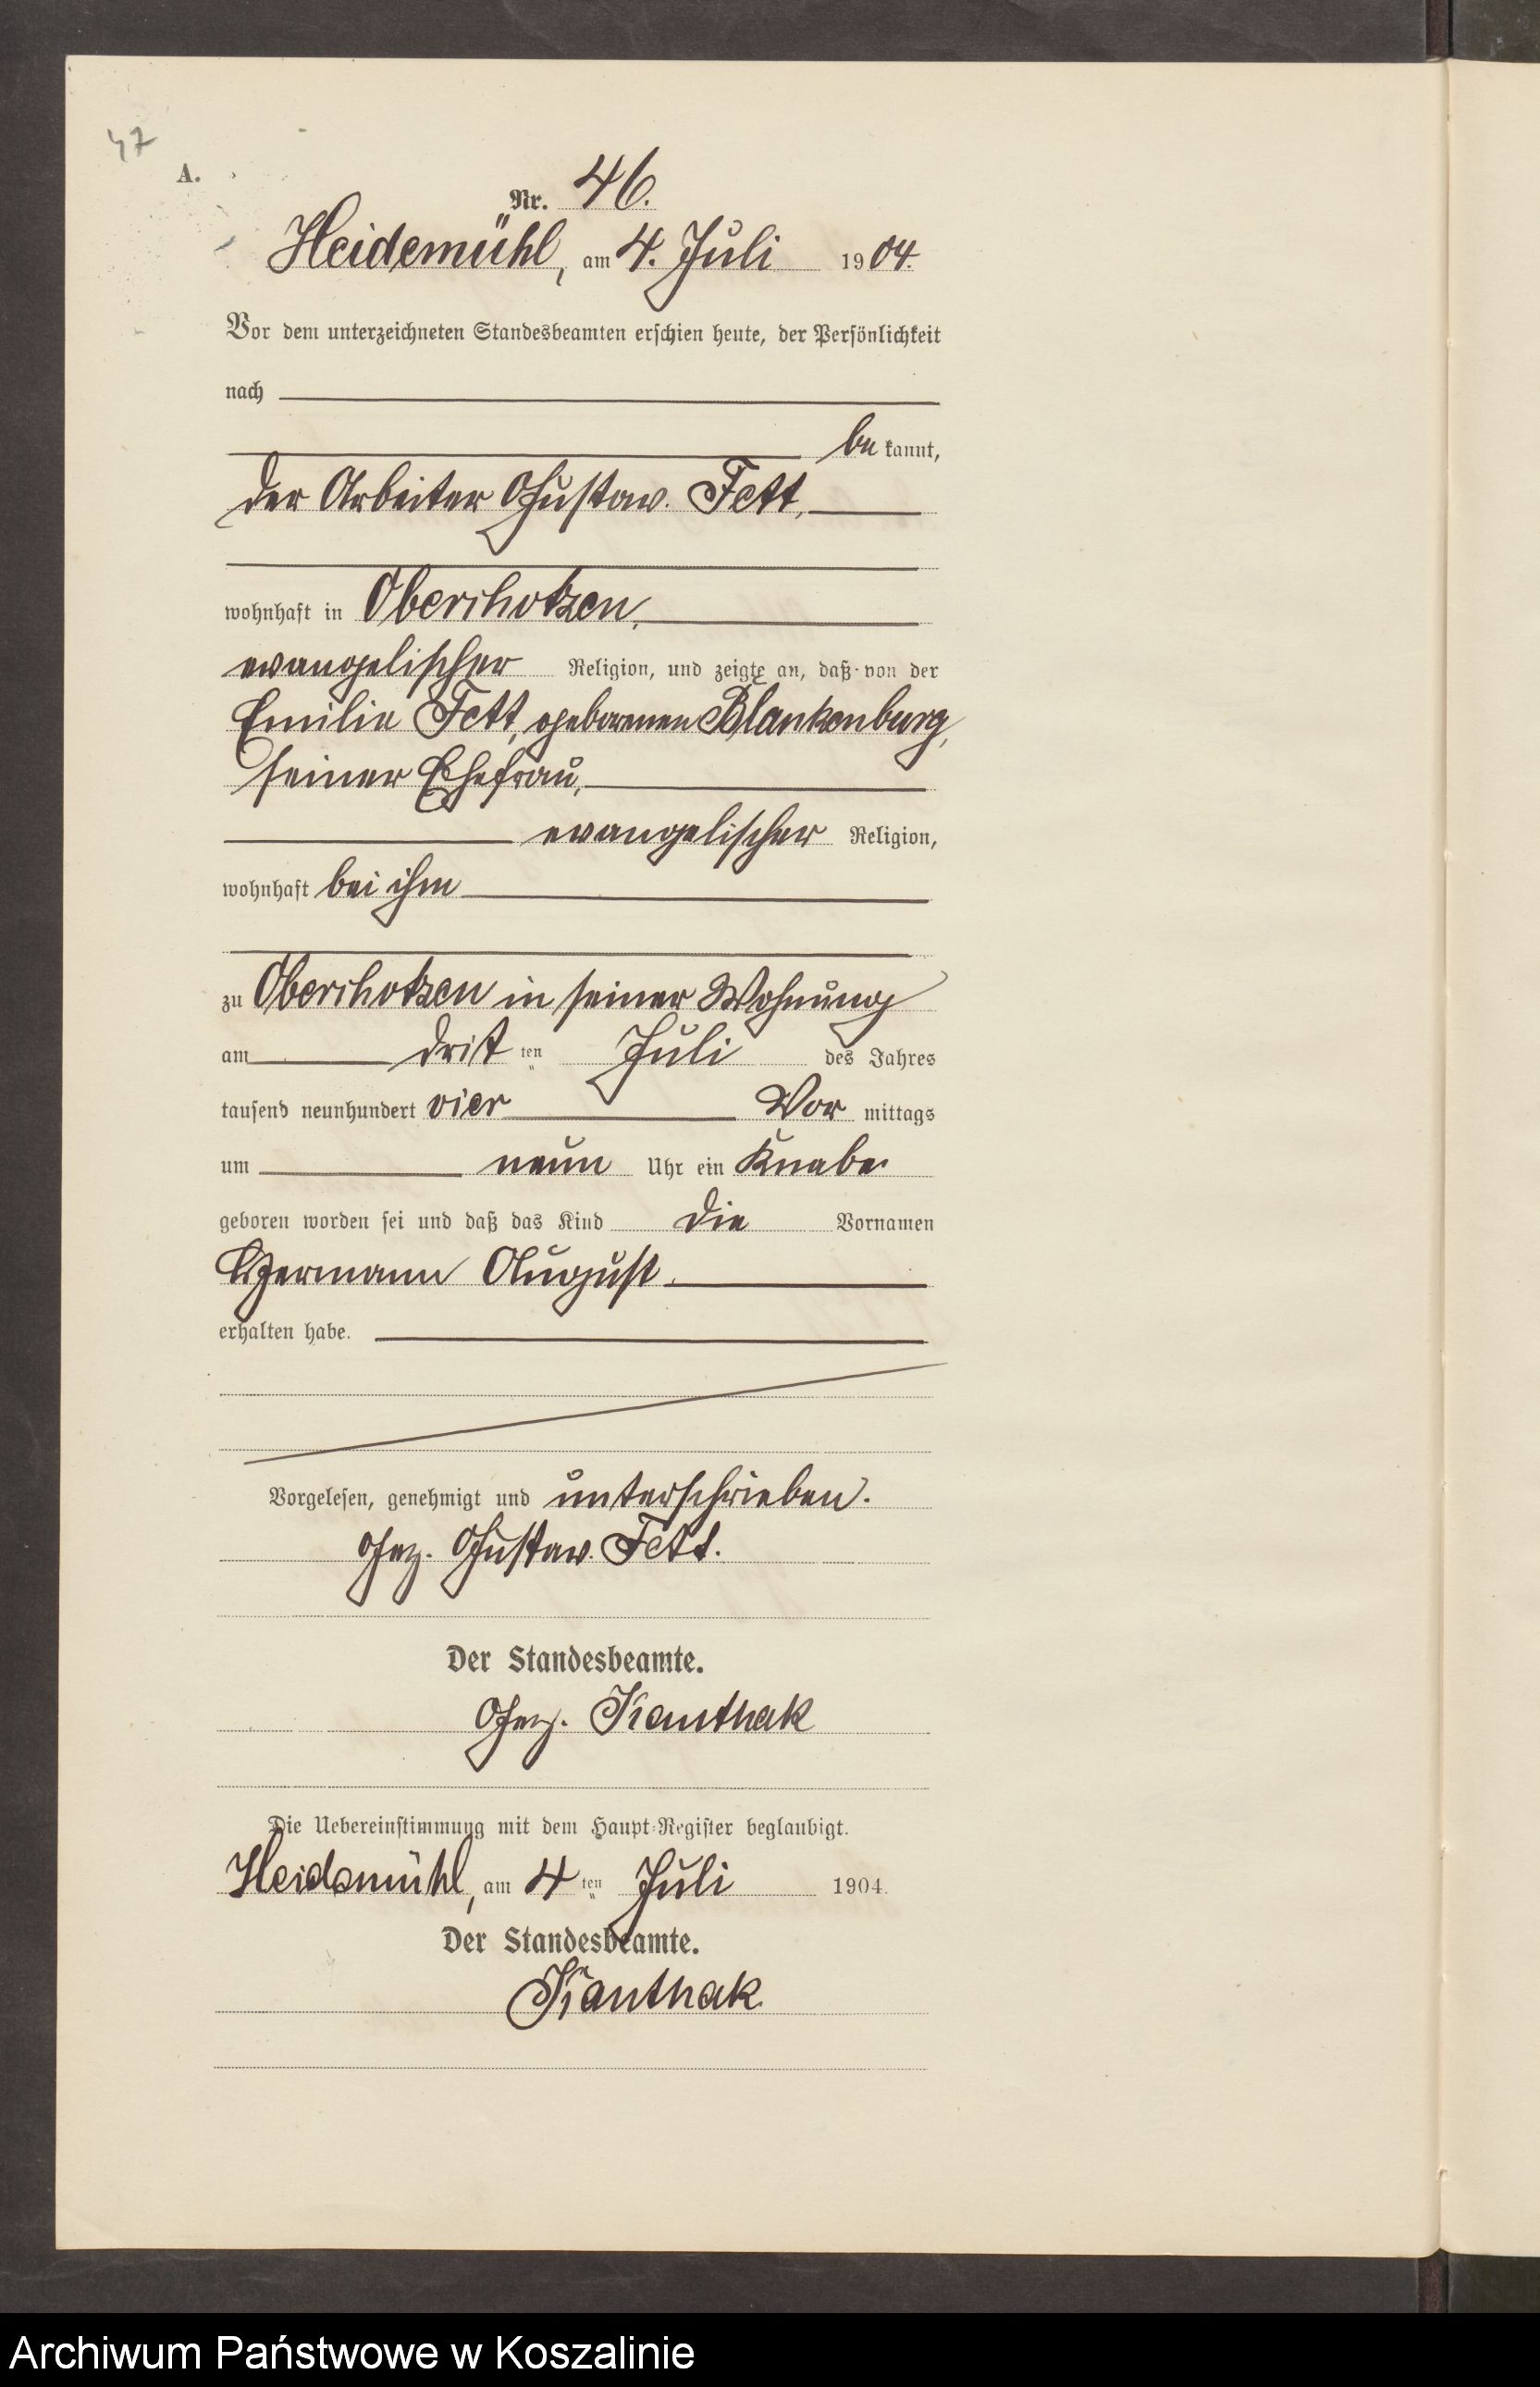 47
A.
Nr. 46.
Heidemühl, am 4. Juli 1904.
Vor dem unterzeichneten Standesbeamten erschien heute, der Persönlichkeit
nach
be kannt,
der Arbeiter Gustav Fett,
wohnhaft in Oberschotzen,
evangelischer Religion, und zeigte an, daß von der
Emilie Fett, geborenen Blankenburg,
seiner Ehefrau,
evangelischer Religion,
wohnhaft bei ihm
zu Oberschotzen in seiner Wohnung
am dritt ten Juli des Jahres
tausend neunhundert vier Vor mittags
um neun Uhr ein Knabe
geboren worden sei und daß das Kind die Vornamen
Hermann August
erhalten habe.
Vorgelesen, genehmigt und unterschrieben.
Gez. Gustav Fett.
Der Standesbeamte.
Gez. Kanthak
Die Uebereinstimmung mit dem Haupt-Register beglaubigt.
Heidemühl, am 4 ten Juli 1904.
Der Standesbeamte.
Kanthak
Archiwum Państwowe w Koszalinie